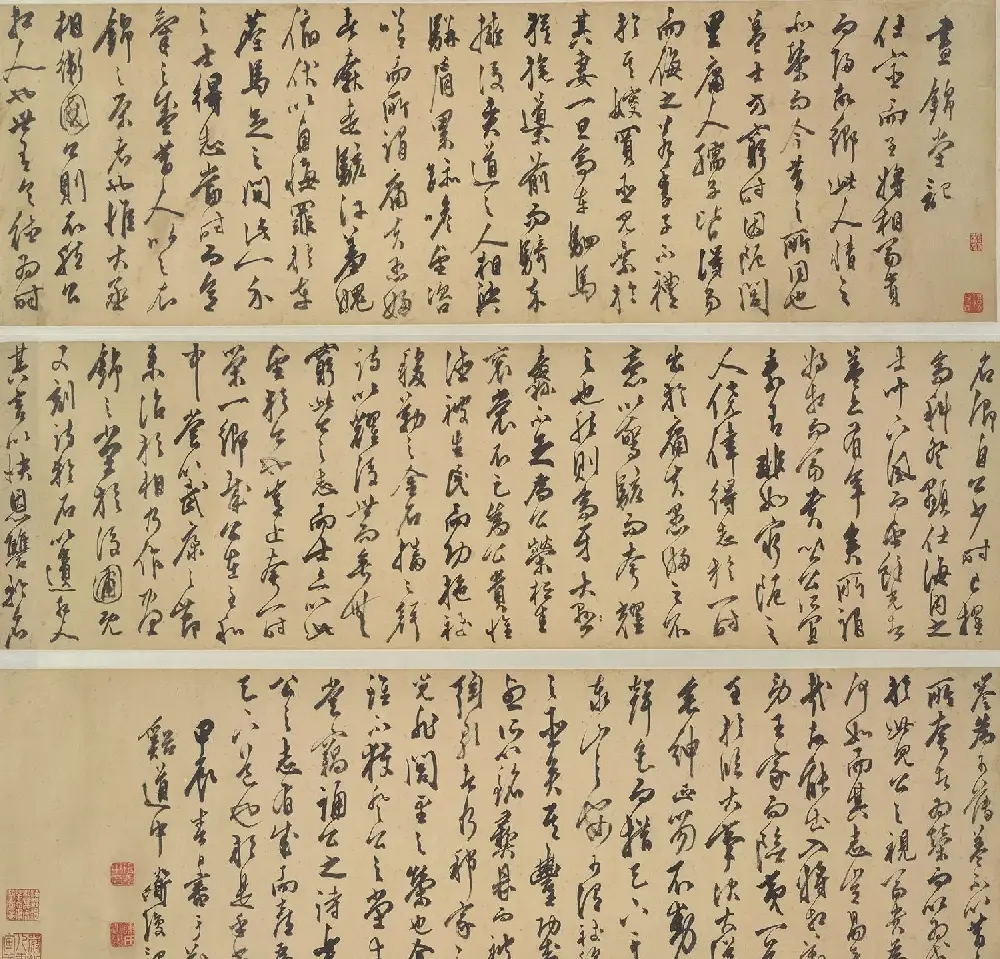 晝錦堂記
仕宦而至將相富貴
而歸故鄉此人情之
所榮而今昔之所同也
蓋士方窮時困阨閭
里庸人孺子皆得易
而侮之若季子不禮
於其嫂買臣見棄於
其妻一旦高車駟馬
旗旄導前而騎卒
擁後夾道之人相與
駢肩累跡瞻望咨
嗟而所謂庸夫愚婦
者奔走駭汗羞愧
俯伏以自悔罪於車
塵馬足之間此一介
之士得志當時而意
氣之盛昔人比之衣
錦之榮者也惟大丞
相衛國公則不然公
相人也世有令德為時
名卿自公少時已擢
高科登顯仕海內之
士聞下風而望餘光者
蓋亦有年矣所謂
將相而富貴皆公所宜
素有非如窮阨之
人僥倖得志於一時
出於庸夫愚婦之不
意以驚駭而夸耀
之也然則高牙大
纛不足為公榮桓圭
袞裳不足為公貴惟
德被生民而功施社
稷勒之金石播之聲
詩以耀後世而垂無
窮此公之志而士亦以此
望於公也豈止夸一時
榮一鄉哉公在至和
中嘗以武康之節
來治於相乃作晝
錦之堂於後圃既
又刻詩於石以遺相人
其言以快恩讎矜名
譽為可薄蓋不以昔人
所夸者為榮而以為戒
於此見公之視富貴為
何如而其志豈易量
哉故能出入將相勤
勞王家而夷險一
至於臨大事決大議
垂紳正笏不動
聲色而措天下於
泰山之安可謂社稷
之臣矣其豐功盛
烈所以銘彝鼎而被
絃歌者乃邦家
光非閭里之榮也余
雖不獲登公之堂幸
嘗竊誦公之詩樂
公之志有成而喜為
天下道也於是乎書
書于
谿道中